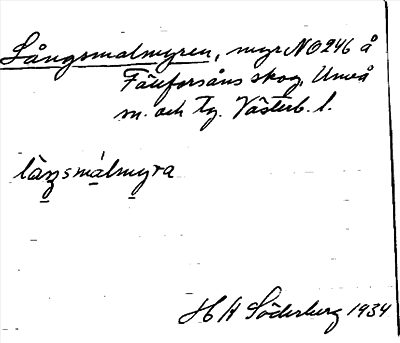 Långsmalmyren, myr NO 246 å
Fällforsåns skog, Umeå
sn. och tg. Västerb. l.
làŋsmálmyra
H A Söderberg 1934